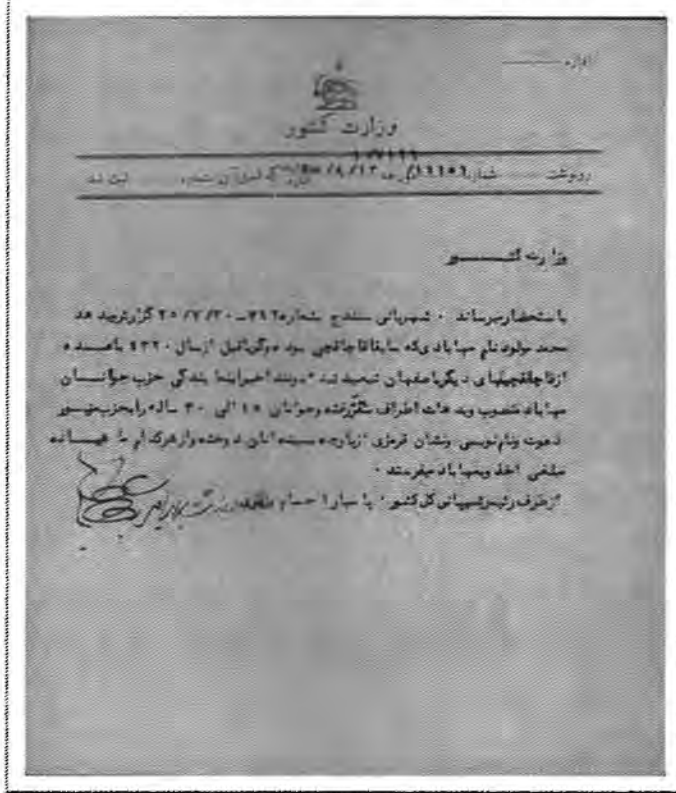 اداره
وزارت کشور
رونوشت شماره ثبت شد
وزارت کشور
باستحضار میرساند . شهربانی سنندج بشماره گزارش میدهد
محمد مولود نام مهابادی که سابقا قاچاقچی بوده و گویا قبل از سال ۱۳۲۰ با عده
از قاچاقچیهای دیگر باصفهان تبعید شده بودند اخیرا بنمایندگی حزب جوانان
مهاباد منصوب وبدهات اطراف سقز رفته وجوانان ۱۵ الی ۳۰ ساله رابحزب مزبور
دعوت ونام نویسی ونشان قرمزی از پارچه بسینه آنان دوخته واز هرکدام ماهیانه
مبلغی اخذ وبمهاباد میفرستد .
از طرف رئیس شهربانی کل کشور .